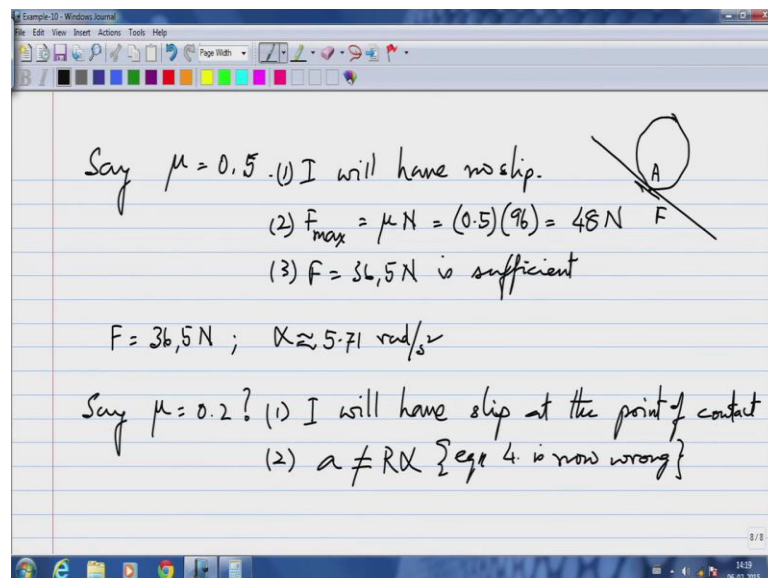 Example-10 - Windows Journal
File Edit View Insert Actions Tools Help
Page Width
B I
Say μ = 0.5 . (1) I will have no slip.
(2) Fmax = μN = (0.5)(96) = 48N
(3) F = 36,5N is sufficient
A
F
F = 36,5N ; α ≈ 5.71 rad/s²
Say μ = 0.2 ? (1) I will have slip at the point of contact
(2) a ≠ Rα {eqn 4. is now wrong}
8/8
14:19
06-02-2015